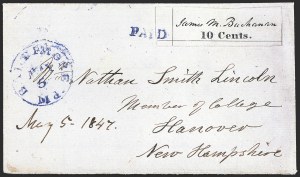 James M. Buchanan
10 Cents.
PAID
BALTIMORE Md.
5
Nathan Smith Lincoln
Member of College
May 5 - 1847.
Hanover
New Hampshire